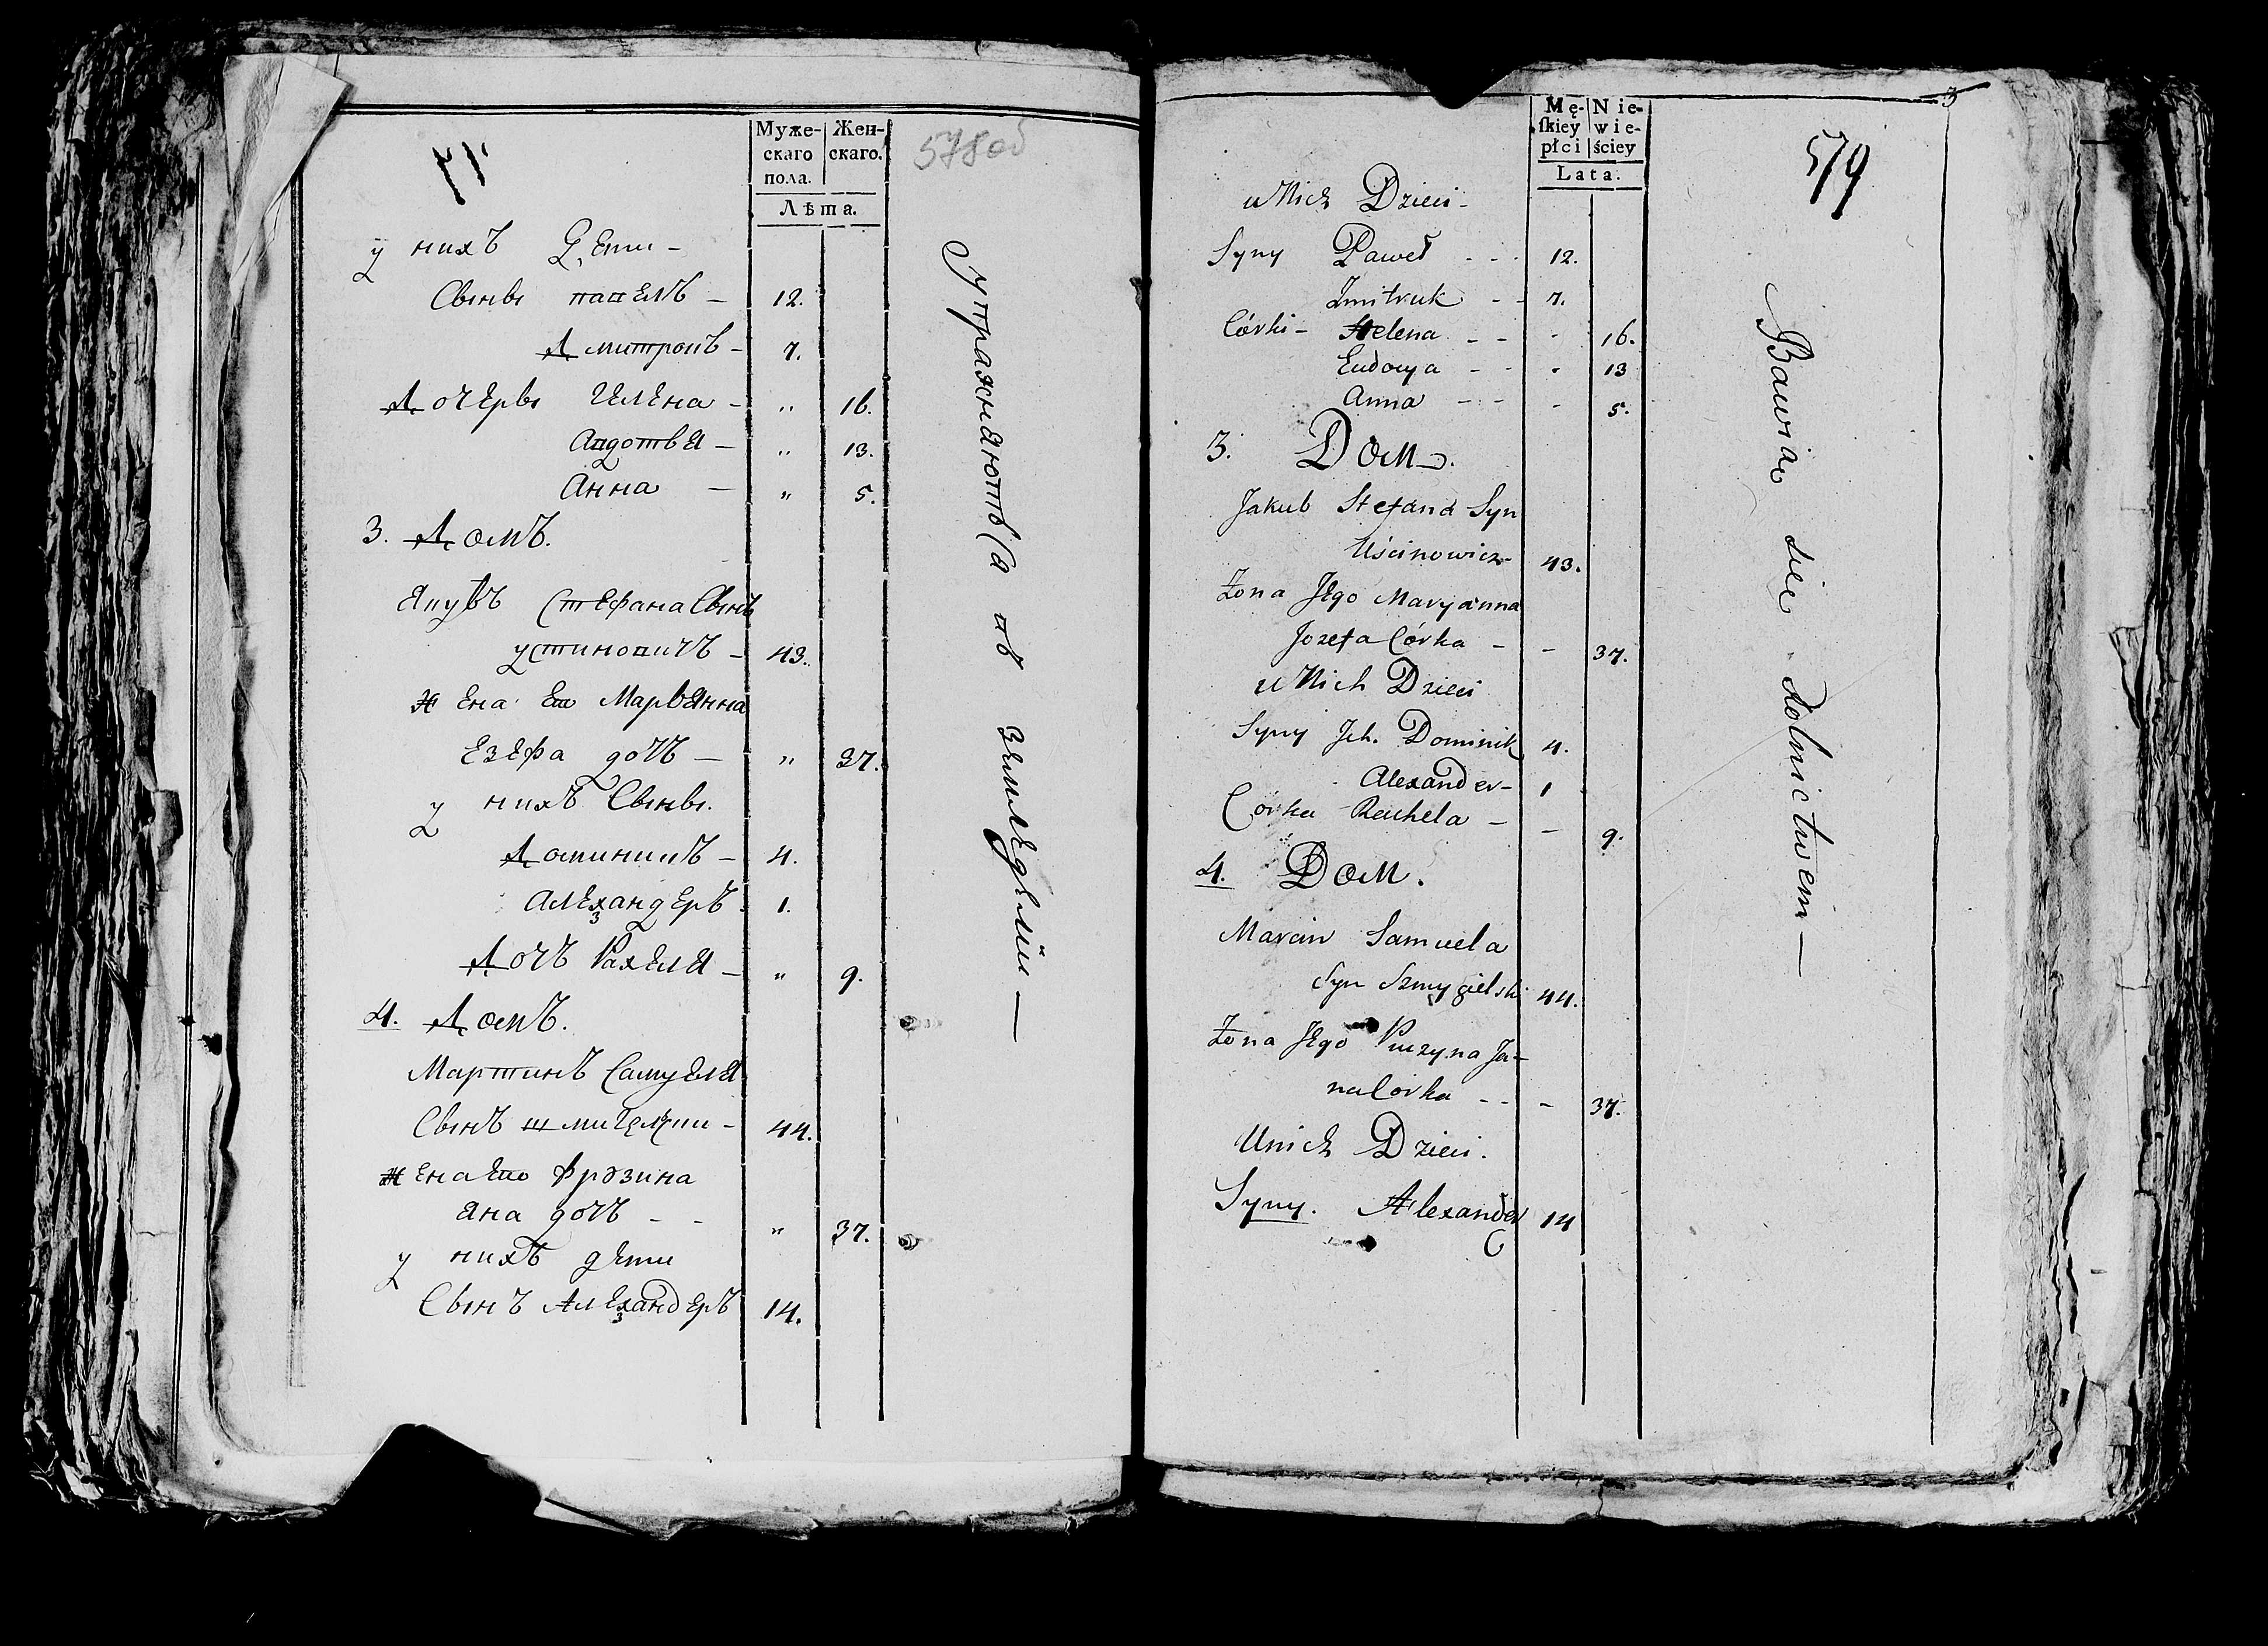 Муже-
скаго
пола.
Жен-
скаго.
Лѣта.
578об
у нихЪ Дѣти –
Сыны павелЪ – 12.
Дмитрокъ – 7.
Дочеры Гелена – „ 16.
Авдотья – „ 13.
Анна – „ 5.
3. ДомЪ.
ЯкубЪ Стефана Сынъ
устиновичЪ – 43.
Жена Его Марьянна
Езефа дочЪ – „ 37.
у нихЪ Сыны.
ДоминикЪ – 4.
АлехзандерЪ 1.
ДочЪ Рахеля – „ 9.
4. ДомЪ.
МартинЪ Самуеля
СынЪ шмигельски – 44.
Жена Его Фрозина
Яна дочЪ – – „ 37.
у нихЪ дѣти
СынЪ АлехзандерЪ 14.
Упражняються въ земледѣліи —
Mę-
ſkiey
płci
Nie-
wie-
ściey
Lata.
3
579
u Nich Dzieci –
Syny Paweł - - - 12.
Zmitruk - - 7.
Córki – Helena - - - 16.
Eudocya - - - 13
Anna - - - 5.
3. Dom.
Jakub Stefana Syn
Uścinowicz – 43.
Żona Jego Maryanna
Jozefa Córka – – 37.
u Nich Dzieci
Syny Ich. Dominik 4.
Alexander – 1
Corka Rachela – – 9.
4. Dom.
Marcin Samuela
Syn Szmygielski 44.
Żona Jego Pruzyna Ja-
na Corka - - - 37.
U nich Dzieci.
Syny. Alexander 14
Bawią się Rolnictwem —